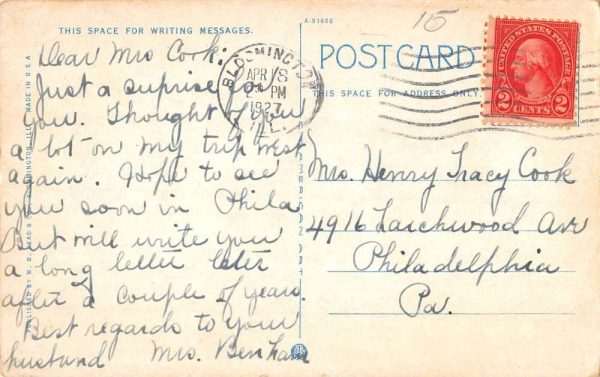 THIS SPACE FOR WRITING MESSAGES.
Dear Mrs Cook:
Just a surprise
you. Thought of you
a lot on my trip west
again. Hope to see
you soon in Phila
But will write you
a long letter later
after a couple of years.
Best regards to your
husband Mrs. Benham
MADE IN U.S.A.
PUBLISHED BY W. B. READ &
A-91686
15
POST CARD
THIS SPACE FOR ADDRESS ONLY
BLOOMINGTON
APR 8
PM
1927
ILL.
UNITED STATES POSTAGE
2 CENTS 2
Mrs. Henry Tracy Cook
4916 Larchwood Ave
Philadelphia
Pa.